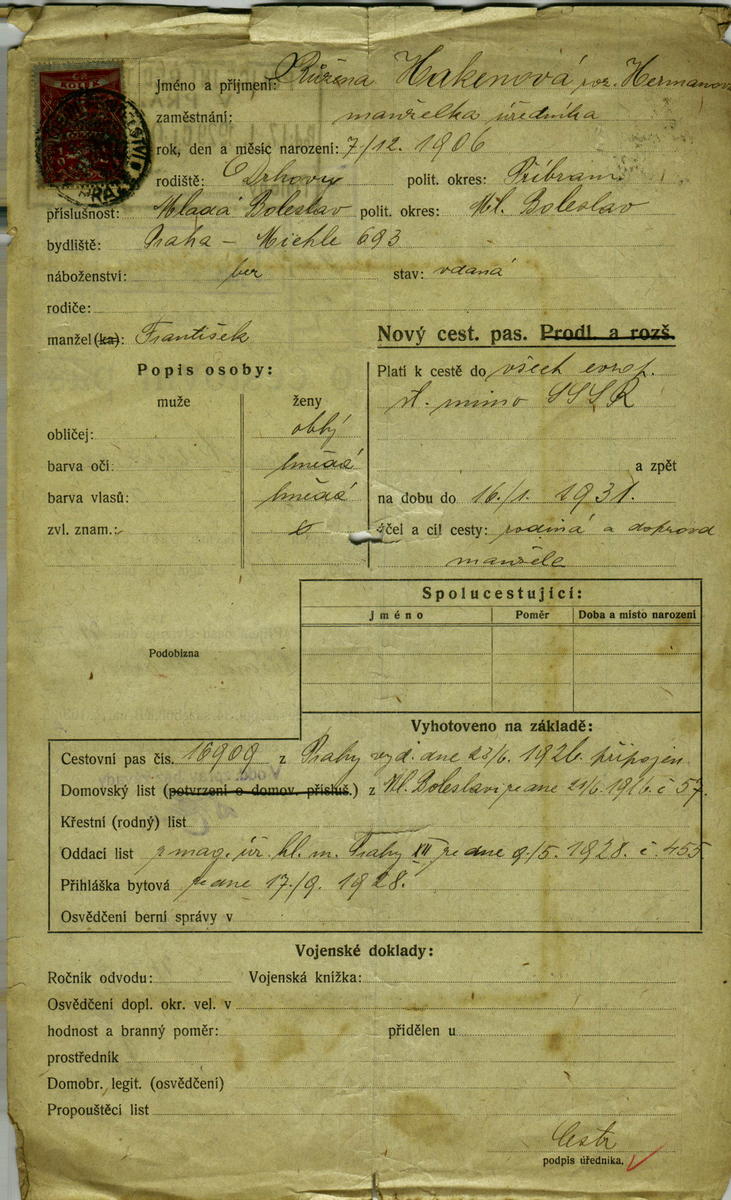 Jméno a příjmení: Růžena Hakenová roz. Hermanova
zaměstnání: manželka úředníka
rok, den a měsíc narození: 7/12. 1906
rodiště: Drhovy polit. okres: Příbram.
příslušnost: Mladá Boleslav polit. okres: Ml. Boleslav
bydliště: Praha – Michle 693
náboženství: bez stav: vdaná
rodiče:
manžel (ka): František
Nový cest. pas. Prodl. a rozš.
Popis osoby:
muže ženy
obličej: oblý
barva očí: hnědá
barva vlasů: hnědá
zvl. znam.:
Platí k cestě do všech evrop.
st. mimo SSSR
a zpět
na dobu do 16/1. 1931.
účel a cíl cesty: rodinná a doprovod
manžela
Spolucestující:
Jméno Poměr Doba a místo narození
Podobizna
Vyhotoveno na základě:
Cestovní pas čís. 16909 z Prahy vyd. dne 23/6. 1926. připojen
Domovský list (potvrzení o domov. přísluš.) z Ml. Boleslavi ze dne 21/6. 1916. č 57.
Křestní (rodný) list
Oddací list z mag. úř. hl. m. Prahy III ze dne 9./5. 1928. č. 455
Přihláška bytová ze dne 17./9. 1928.
Osvědčení berní správy v
Vojenské doklady:
Ročník odvodu: Vojenská knížka:
Osvědčení dopl. okr. vel. v
hodnost a branný poměr: přidělen u
prostředník
Domobr. legit. (osvědčení)
Propouštěcí list
podpis úředníka.